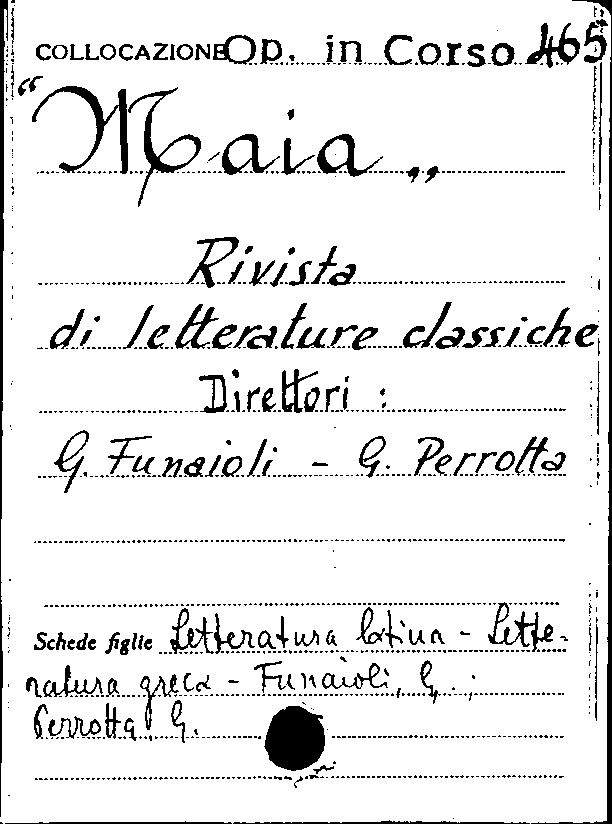 COLLOCAZIONE Op. in Corso 465
"Maia„
Rivista
di letterature classiche
Direttori :
G. Funaioli - G. Perrotta
Schede figlie Letteratura latina - Lette-
ratura greca - Funaioli, G. ;
Perrotta, G.